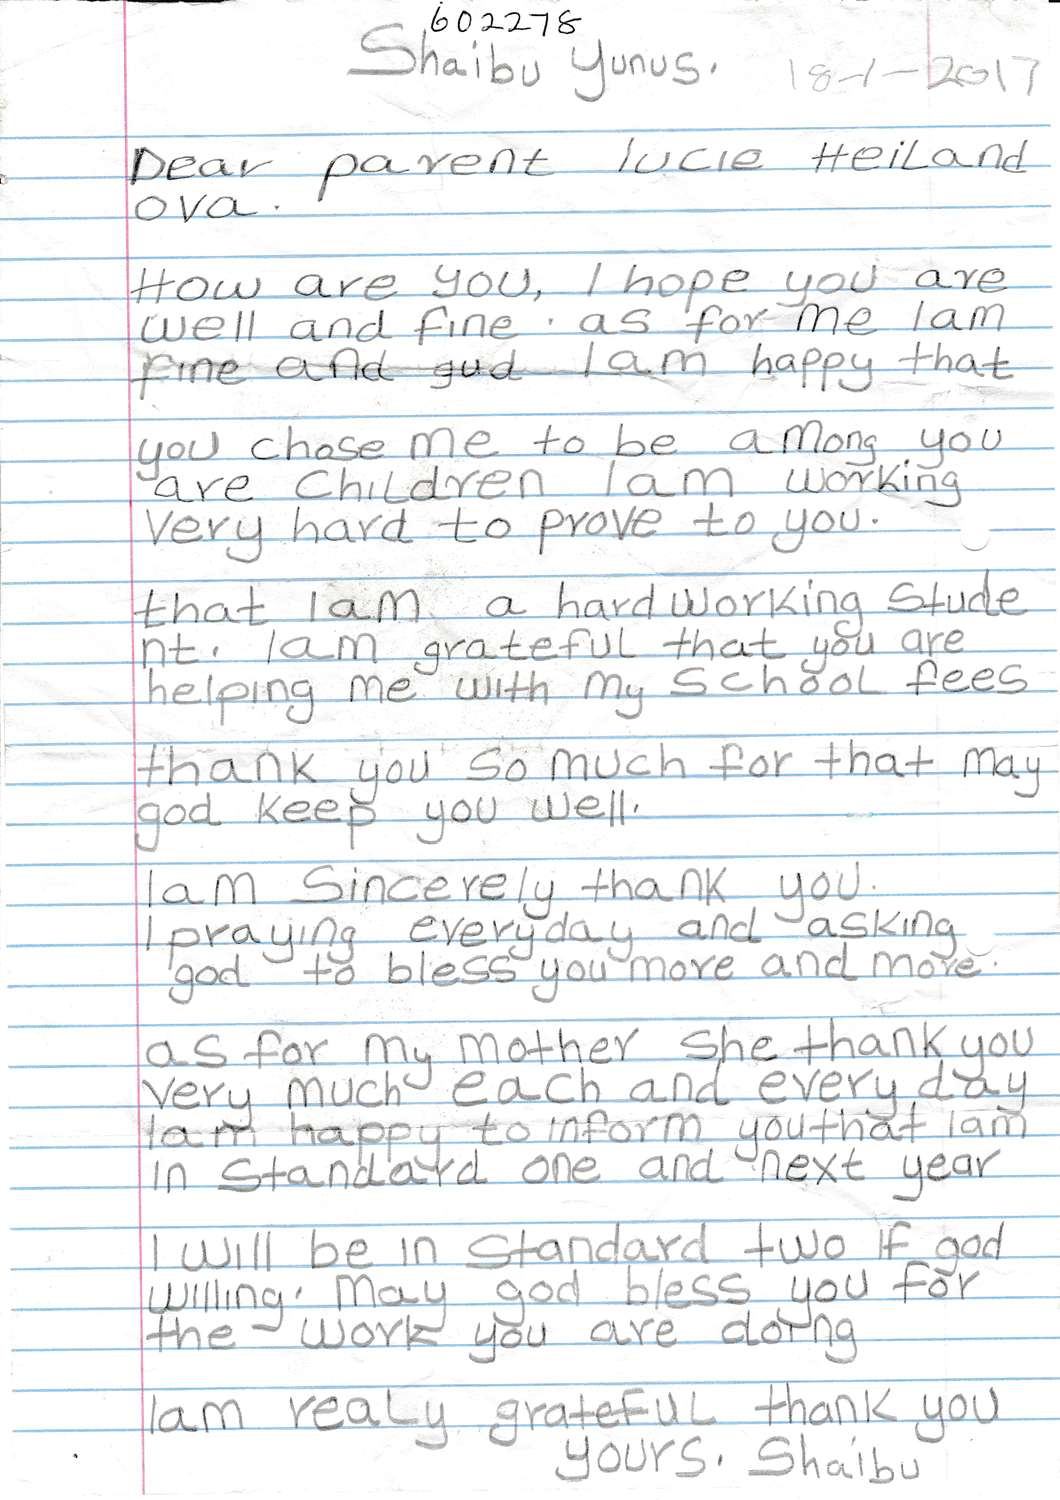 602278
Shaibu Yunus. 18-1-2017
Dear parent lucie Heiland
ova.
How are you, I hope you are
well and fine. as for me Iam
fine and gud Iam happy that
you chose me to be among you
are children Iam working
very hard to prove to you.
that Iam a hard working stude
nt. Iam grateful that you are
helping me with my school fees
thank you so much for that may
god keep you well.
Iam sincerely thank you.
I praying everyday and asking
god to bless you more and more.
as for my mother she thank you
very much each and every day
Iam happy to inform you that Iam
in standard one and next year
I will be in standard two if god
willing. May god bless you for
the work you are doing
Iam realy grateful thank you
yours. Shaibu